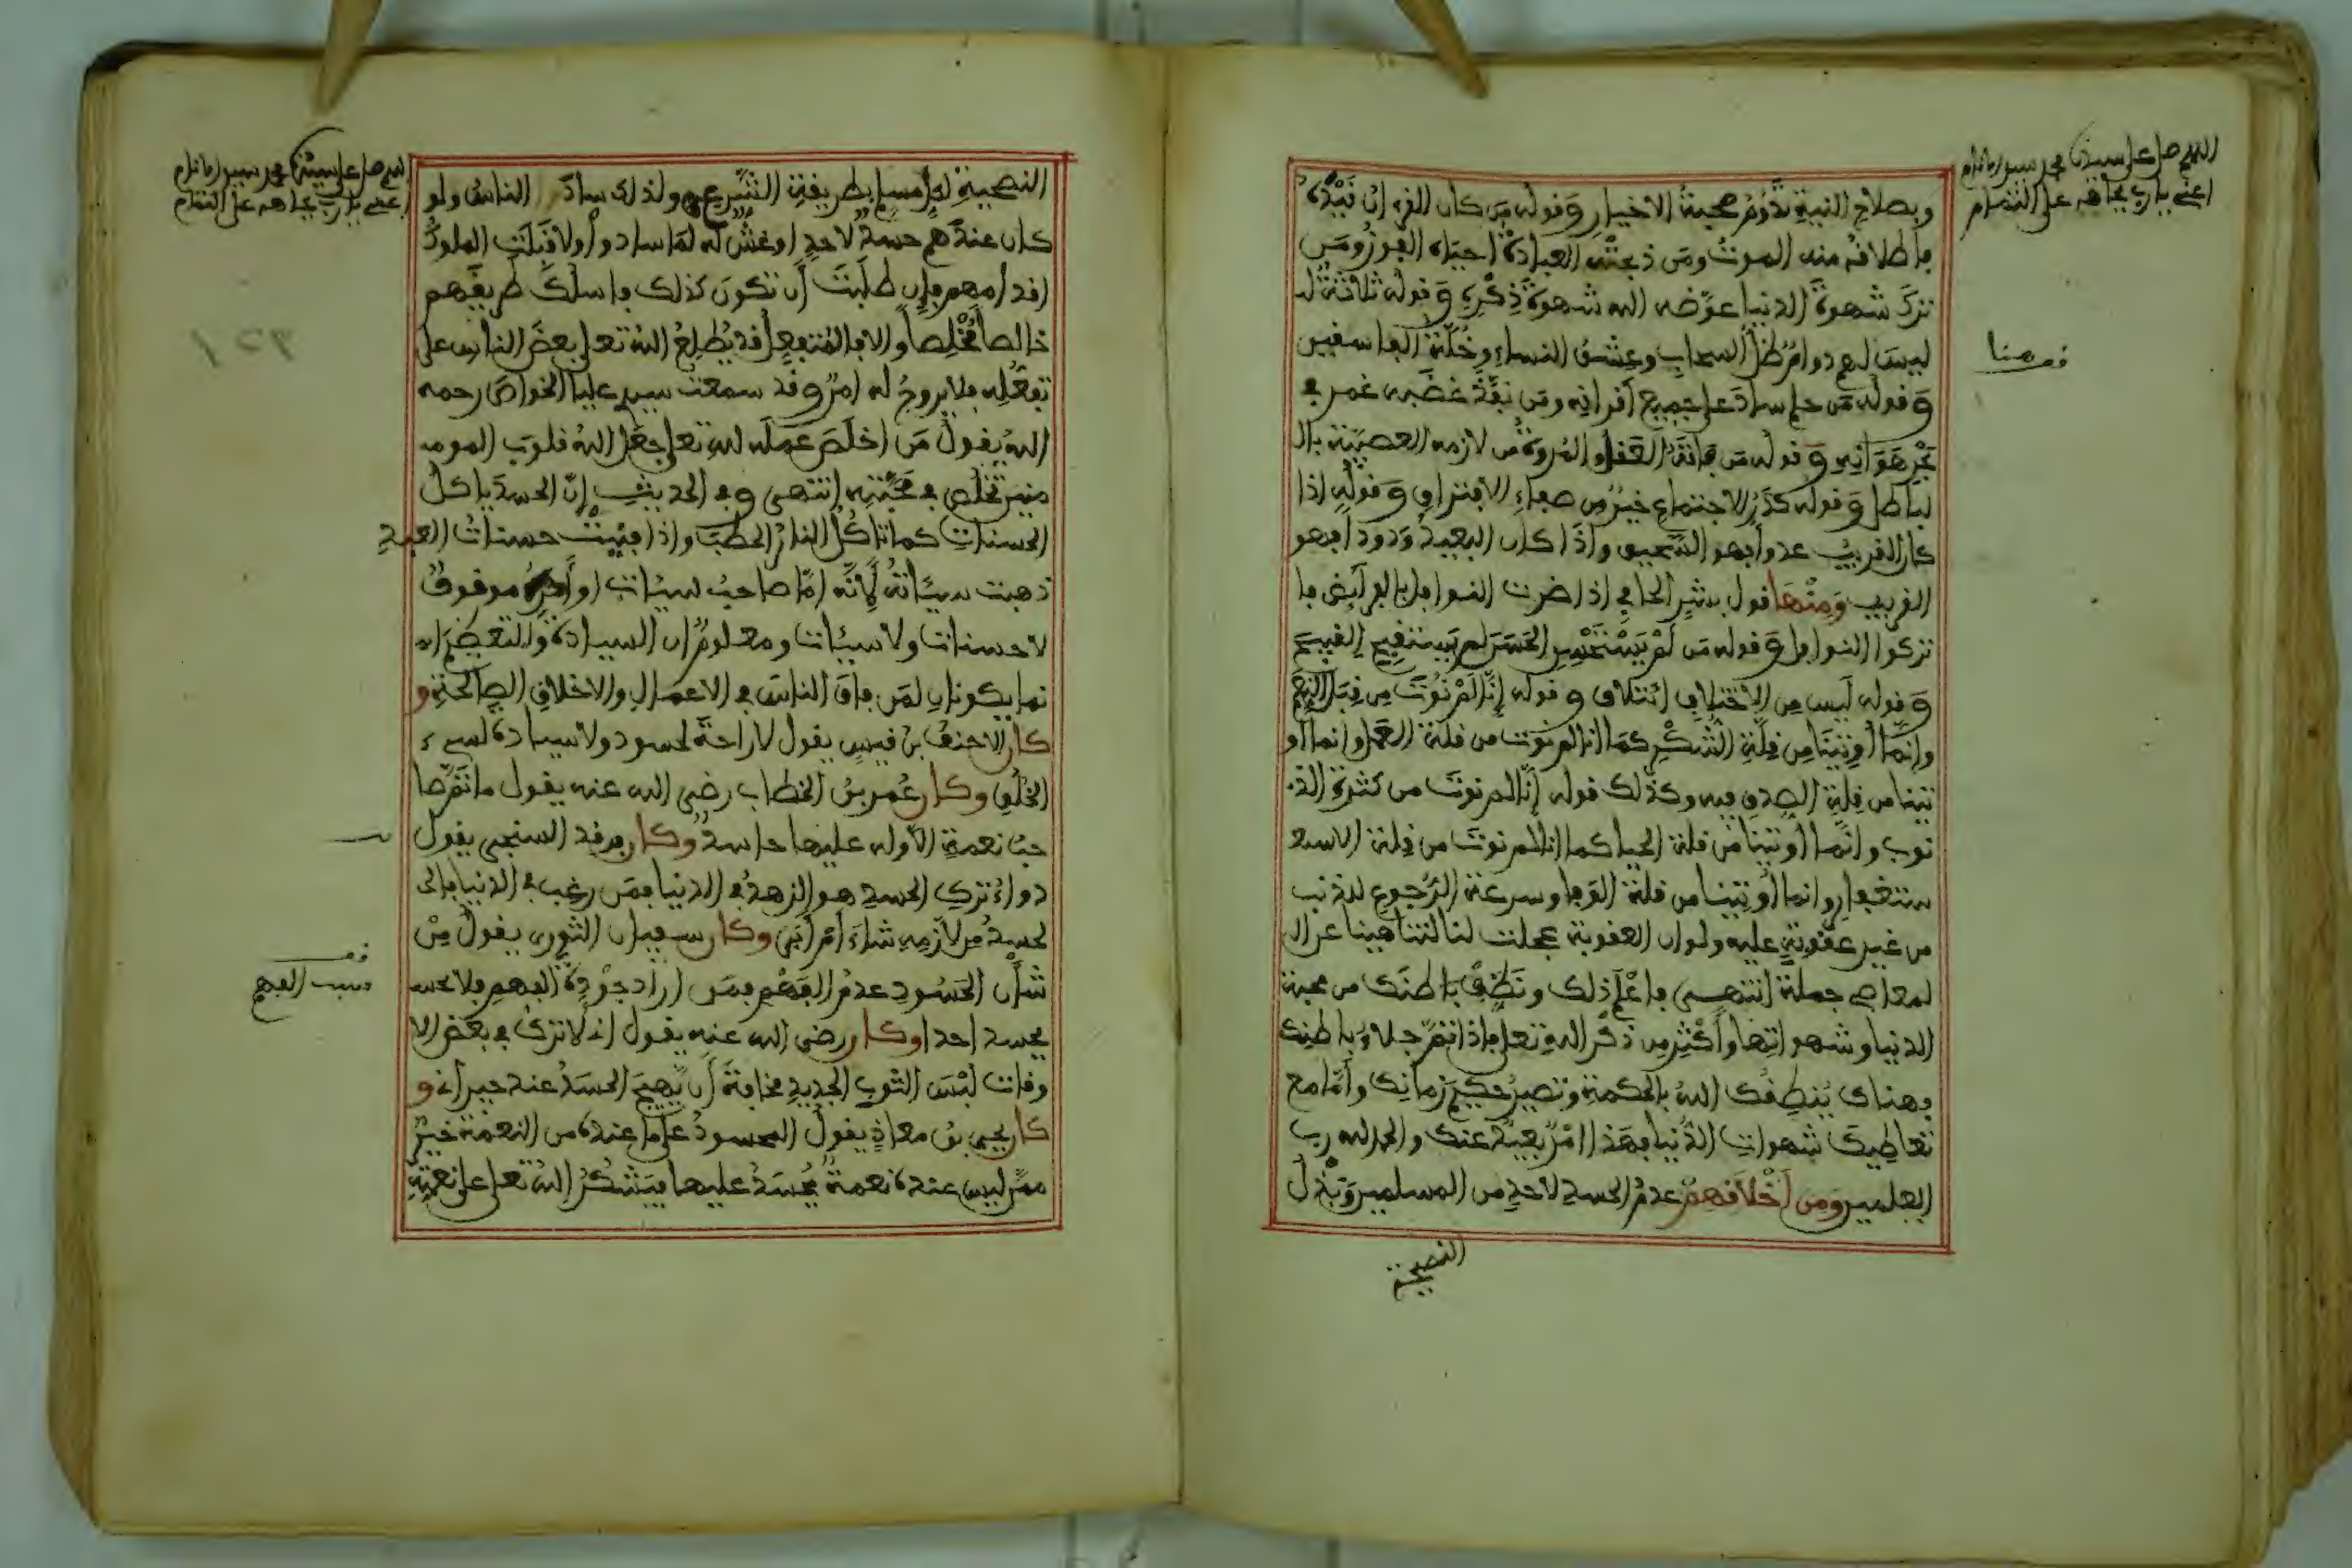 اللهم صل على سيدنا محمد سيد الانام
اعني يا رب بجاهه على التمام
وبصلاح النية تدوم صحبة الاخيار وقوله من كان القرءان قيده
باطلاقه منه الموت ومن ذبحته العبادة احياه الفوز ومن
ترك شهوة الدنيا عوضه الله شهوة ذكره وقوله ثلاثة لـ
ليس لهم دوام ظل السحاب وعشق النساء وخلة الفاسفين
وقوله من حلم ساد على جميع أقرانه ومن نفذ غضبه غمر في
بحر هوانه وقوله من فاتته العقل والمروة من لازمه العصبية بالـ
لباطل وقوله كدر الاجتماع خير من صفاء الافتراق وقوله اذا
كان القريب عدوا فهو السحيق واذا كان البعيد ودودا فهو
القريب ومنها قول بشر الحافي اذا اضرت النوافل بالفرائض فا
تركوا النوافل وقوله من لم يستحسن الحسن لم يستقبح القبيح
وقوله ليس من الاختلاف ائتلاف وقوله إنا لم نوت من قبل النعم
وإنما أوتينا من قلة الشكر كما انا لم نوت من قلة العمل وانما أو
تينا من قلة الصدق فيه وكذلك قوله إنا لم نوت من كثرة الذ
نوب وانما أوتينا من قلة الحيا كما انا لم نوت من قلة الاستغـ
ستغفار وانما أوتينا من قلة الوفا وسرعة الرجوع للذنب
من غير عقوبة عليه ولو ان العقوبة عجلت لنا لتناهينا عن الـ
لمعاصي جملة انتهى فاعلم ذلك ونظف باطنك من محبة
الدنيا وشهواتها وأكثر من ذكر الله تعلى فإذا تم جلاء باطنك
فهناك ينطقك الله بالحكمة وتصير حكيم زمانك وأما مع
تعاطيك شهوات الدنيا فهذا امر بعيد عنك والحمد لله رب
العلمين ومن أخلاقهم عدم الحسد لاحد من المسلمين وبذل
النصيحة
ف هنا
اللهم صل على سيدنا محمد سيد الانام
اعني يا رب بجاهه على التمام
النصيحة لكل مسلم بطريقة الشرعي ولذلك ساد الناس ولو
كان عندهم حسد لاحد او غش له لما سادوا ولا قبلت الملوك
اقدامهم فإن طلبت أن تكون كذلك فاسلك طريقهم
خالصا مخلصا والا فالمنتفعل قد يطلع الله تعلى بعض الناس على
تفعله فلا يروج له امر وقد سمعت سيدي عليا الخواص رحمه
الله يقول من اخلص عمله لله تعلى جعل الله قلوب المومـ
منين تخلص في محبته انتهى وفي الحديث إن الحسد ياكل
الحسنات كما تاكل النار الحطب واذا فنيت حسنات العبد
ذهبت سيئاته لأنه اما صاحب سيئات او أمره موقوف
لا حسنات ولا سيئات ومعلوم ان السيادة والتعظيم ان
نما يكونان لمن فاق الناس في الاعمال والاخلاق الصالحة و
كان الاحنف بن قيس يقول لا راحة لحسود ولا سيادة لسيء
الخلق وكان عمر بن الخطاب رضي الله عنه يقول ما تم صا
حب نعمة الا وله عليها حاسد وكان فرقد السنجي يقول
دواء ترك الحسد هو الزهد في الدنيا فمن رغب في الدنيا فالـ
لحسد من لازمه شاء أم أبى وكان سفيان الثوري يقول من
شأن الحسود عدم الفهم فمن اراد جودة الفهم فلا يحسـ
يحسد احدا وكان رضي الله عنه يقول انه لا ترك في بعض الا
وقات لبس الثوب الجديد مخافة أن يهيج الحسد عند جيراني و
كان يحيى بن معاذ يقول المحسود على ما عنده من النعمة خير
ممن ليس عنده نعمة يحسد عليها فيشكر الله تعلى على نعمته
ف
سبب الفهم